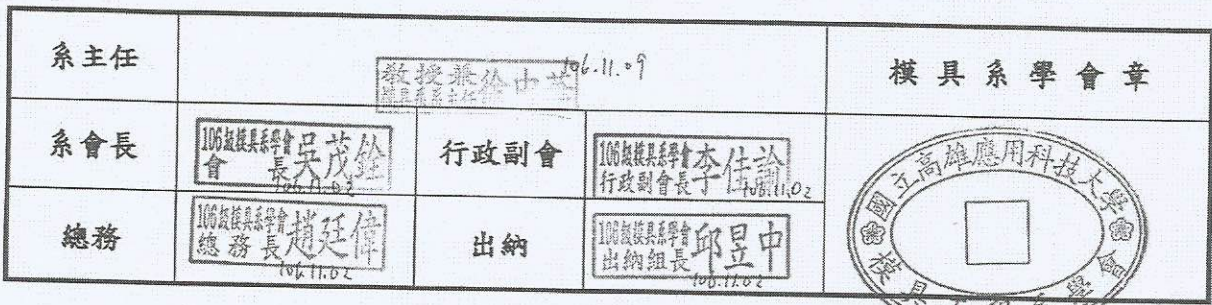 系主任
教授兼
模具系系主任
徐中華
106.11.09
模具系學會章
系會長
106級模具系學會
會長
吳茂銓
106.11.02
行政副會
106級模具系學會
行政副會長
李佳諭
106.11.02
國立高雄應用科技大學
總務
106級模具系學會
總務長
趙廷偉
106.11.02
出納
106級模具系學會
出納組長
邱昱中
106.11.02
模具
學會